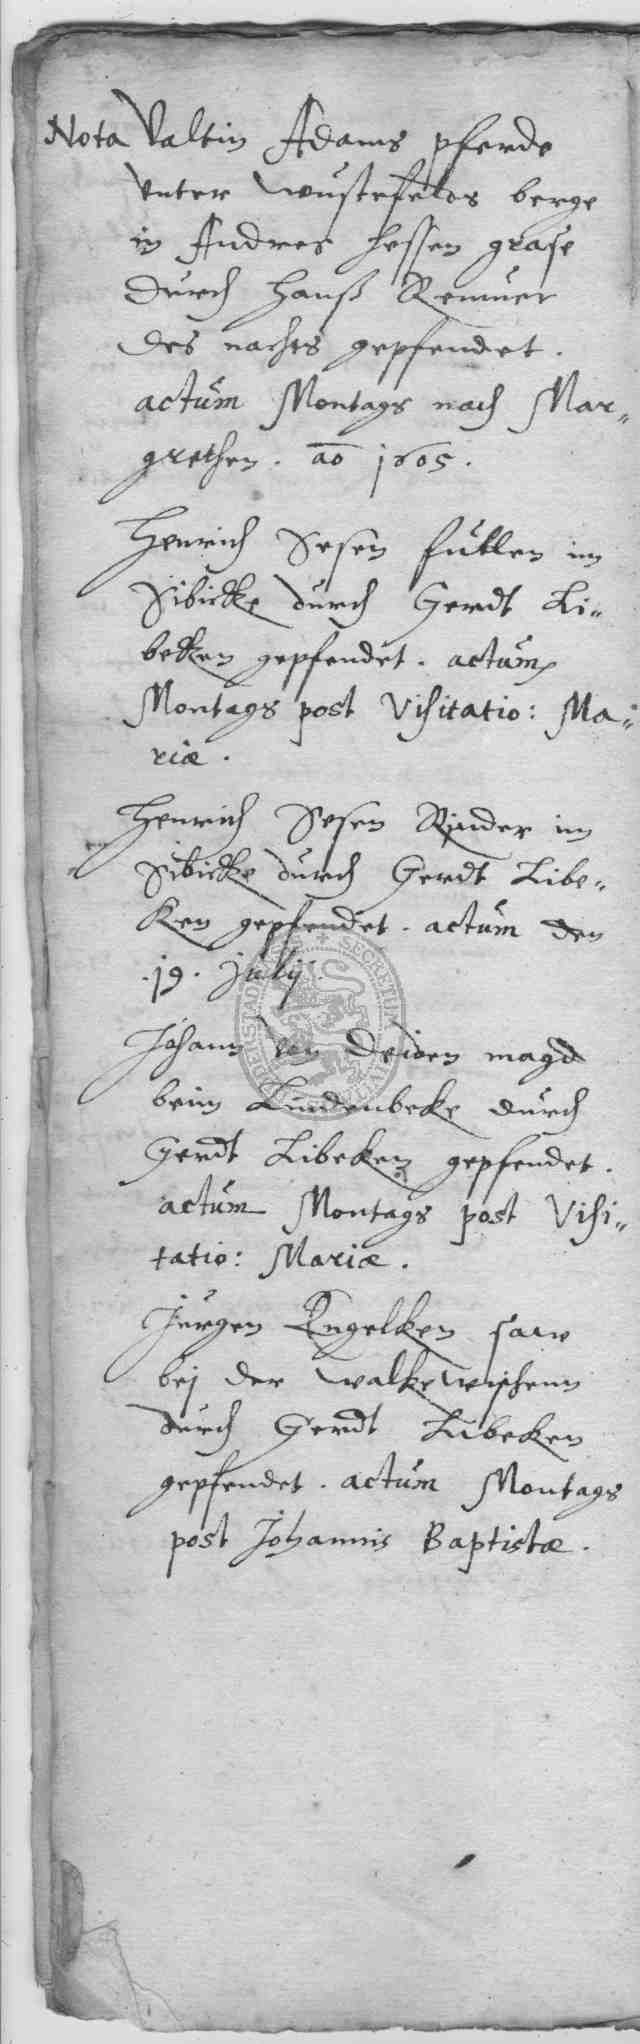 Nota Valtin Adams pferde
vnter wustefeldes berge
in Andres hessen grase
durch Hanß
des nachts gepfendet.
actum Montags nach Mar„
grethen. ao 1605.
Henrich Sesen fullen im
Sibicke durch Gerdt Li„
beken gepfendet. actum
Montags post Visitatio: Ma„
riæ.
Henrich Sesen Rinder im
Sibicke durch Gerdt Libe„
ken gepfendet. actum den
.19. Julij
Johann von magd
beim Lindenbeke durch
Gerdt Libeken gepfendet.
actum Montags post Visi„
tatio: Mariæ.
Jurgen Engelken
bej der
durch Gerdt Libeken
gepfendet. actum Montags
post Johannis Baptistæ.
SECRETUM